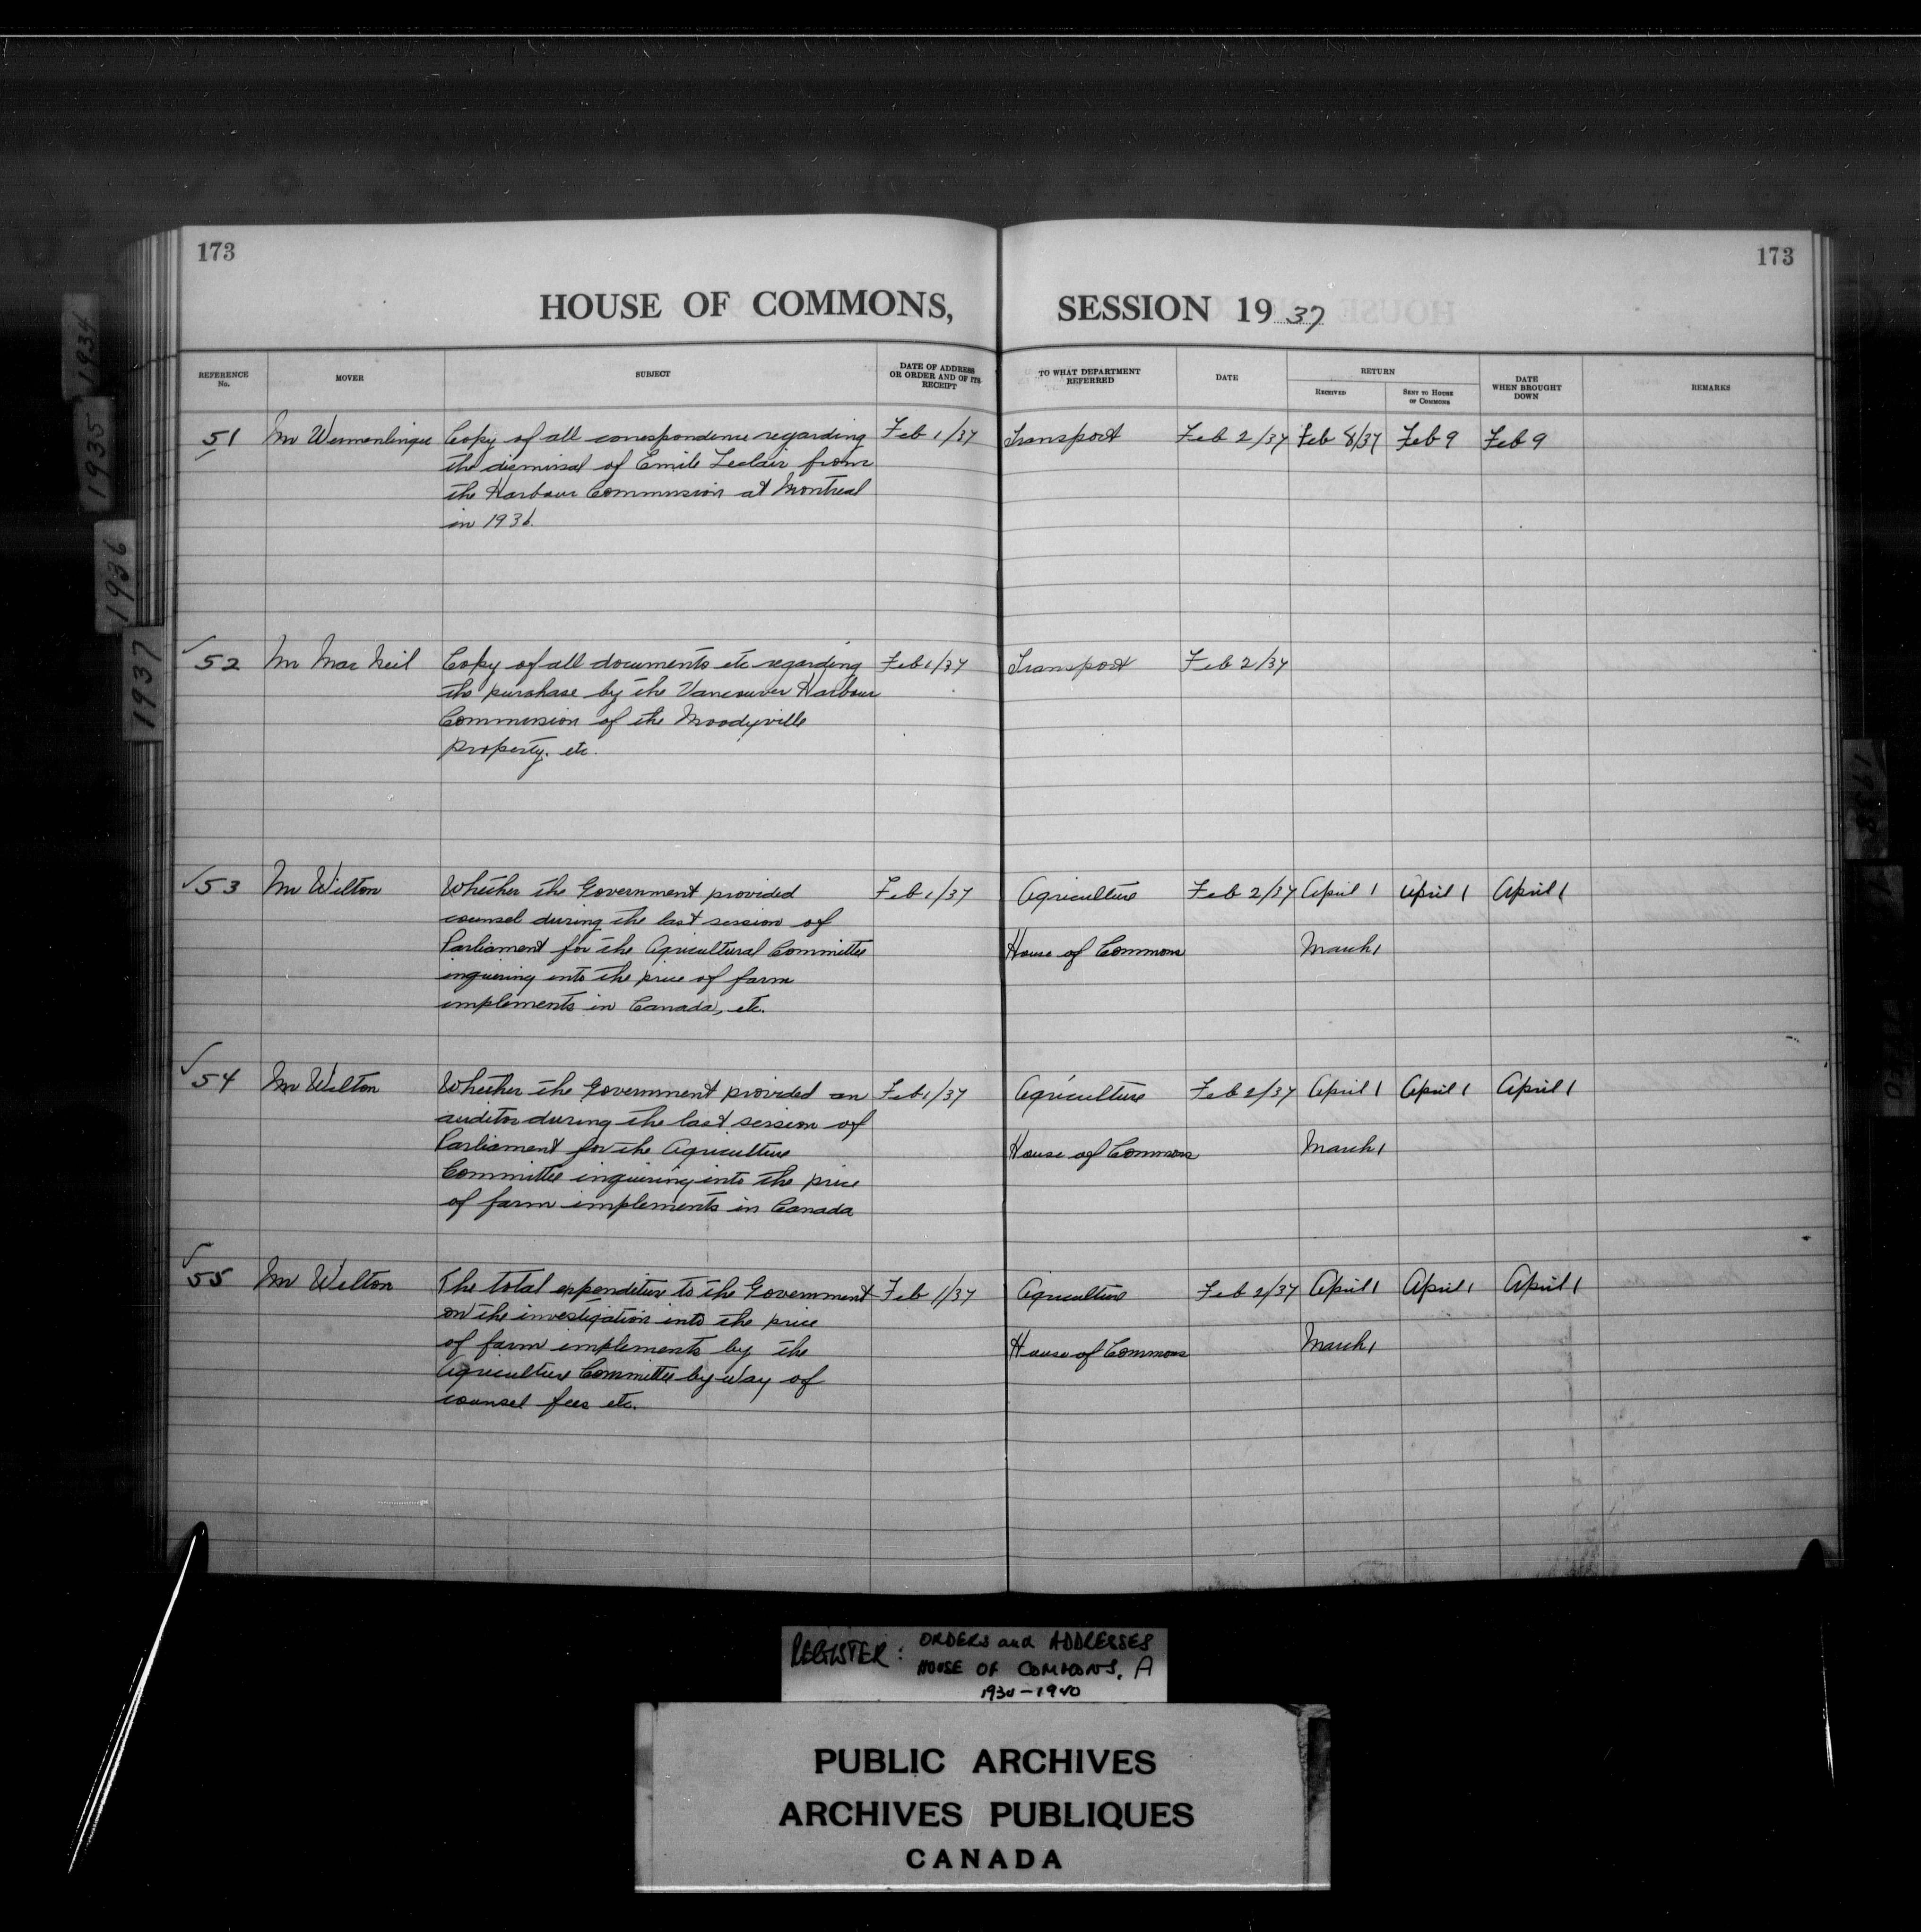 173
173
HOUSE OF COMMONS, SESSION 19 37
REFERENCE No.
MOVER
SUBJECT
DATE OF ADDRESS OR ORDER AND OF ITS RECEIPT
TO WHAT DEPARTMENT REFERRED
DATE
RETURN
RECEIVED
SENT TO HOUSE OF COMMONS
DATE WHEN BROUGHT DOWN
REMARKS
51 Mr Wermenlinger Copy of all correspondence regarding Feb 1/37 Transport Feb 2/37 Feb 8/37 Feb 9 Feb 9
the dismissal of Emile Leclair from
the Harbour Commission at Montreal
in 1936.
√52 Mr Mac Neil Copy of all documents etc regarding Feb 1/37 Transport Feb 2/37
the purchase by the Vancouver Harbour
Commission of the Moodyville
property. etc.
√53 Mr Wilton Whether the Government provided Feb 1/37 Agriculture Feb 2/37 April 1 April 1 April 1
counsel during the last session of
Parliament for the Agricultural Committee House of Commons March 1
inquiring into the price of farm
implements in Canada, etc.
√54 Mr Wilton Whether the Government provided an Feb 1/37 Agriculture Feb 2/37 April 1 April 1 April 1
auditor during the last session of
Parliament for the Agriculture House of Commons March 1
Committee inquiring into the price
of farm implements in Canada
√55 Mr Wilton The total expenditure to the Government Feb 1/37 Agriculture Feb 2/37 April 1 April 1 April 1
on the investigation into the price
of farm implements by the House of Commons March 1
Agriculture Committee by way of
counsel fees etc.
1934
1935
1936
1937
1938
REGISTER: ORDERS and ADDRESSES
HOUSE OF COMMONS, A
1934-1940
PUBLIC ARCHIVES
ARCHIVES PUBLIQUES
CANADA